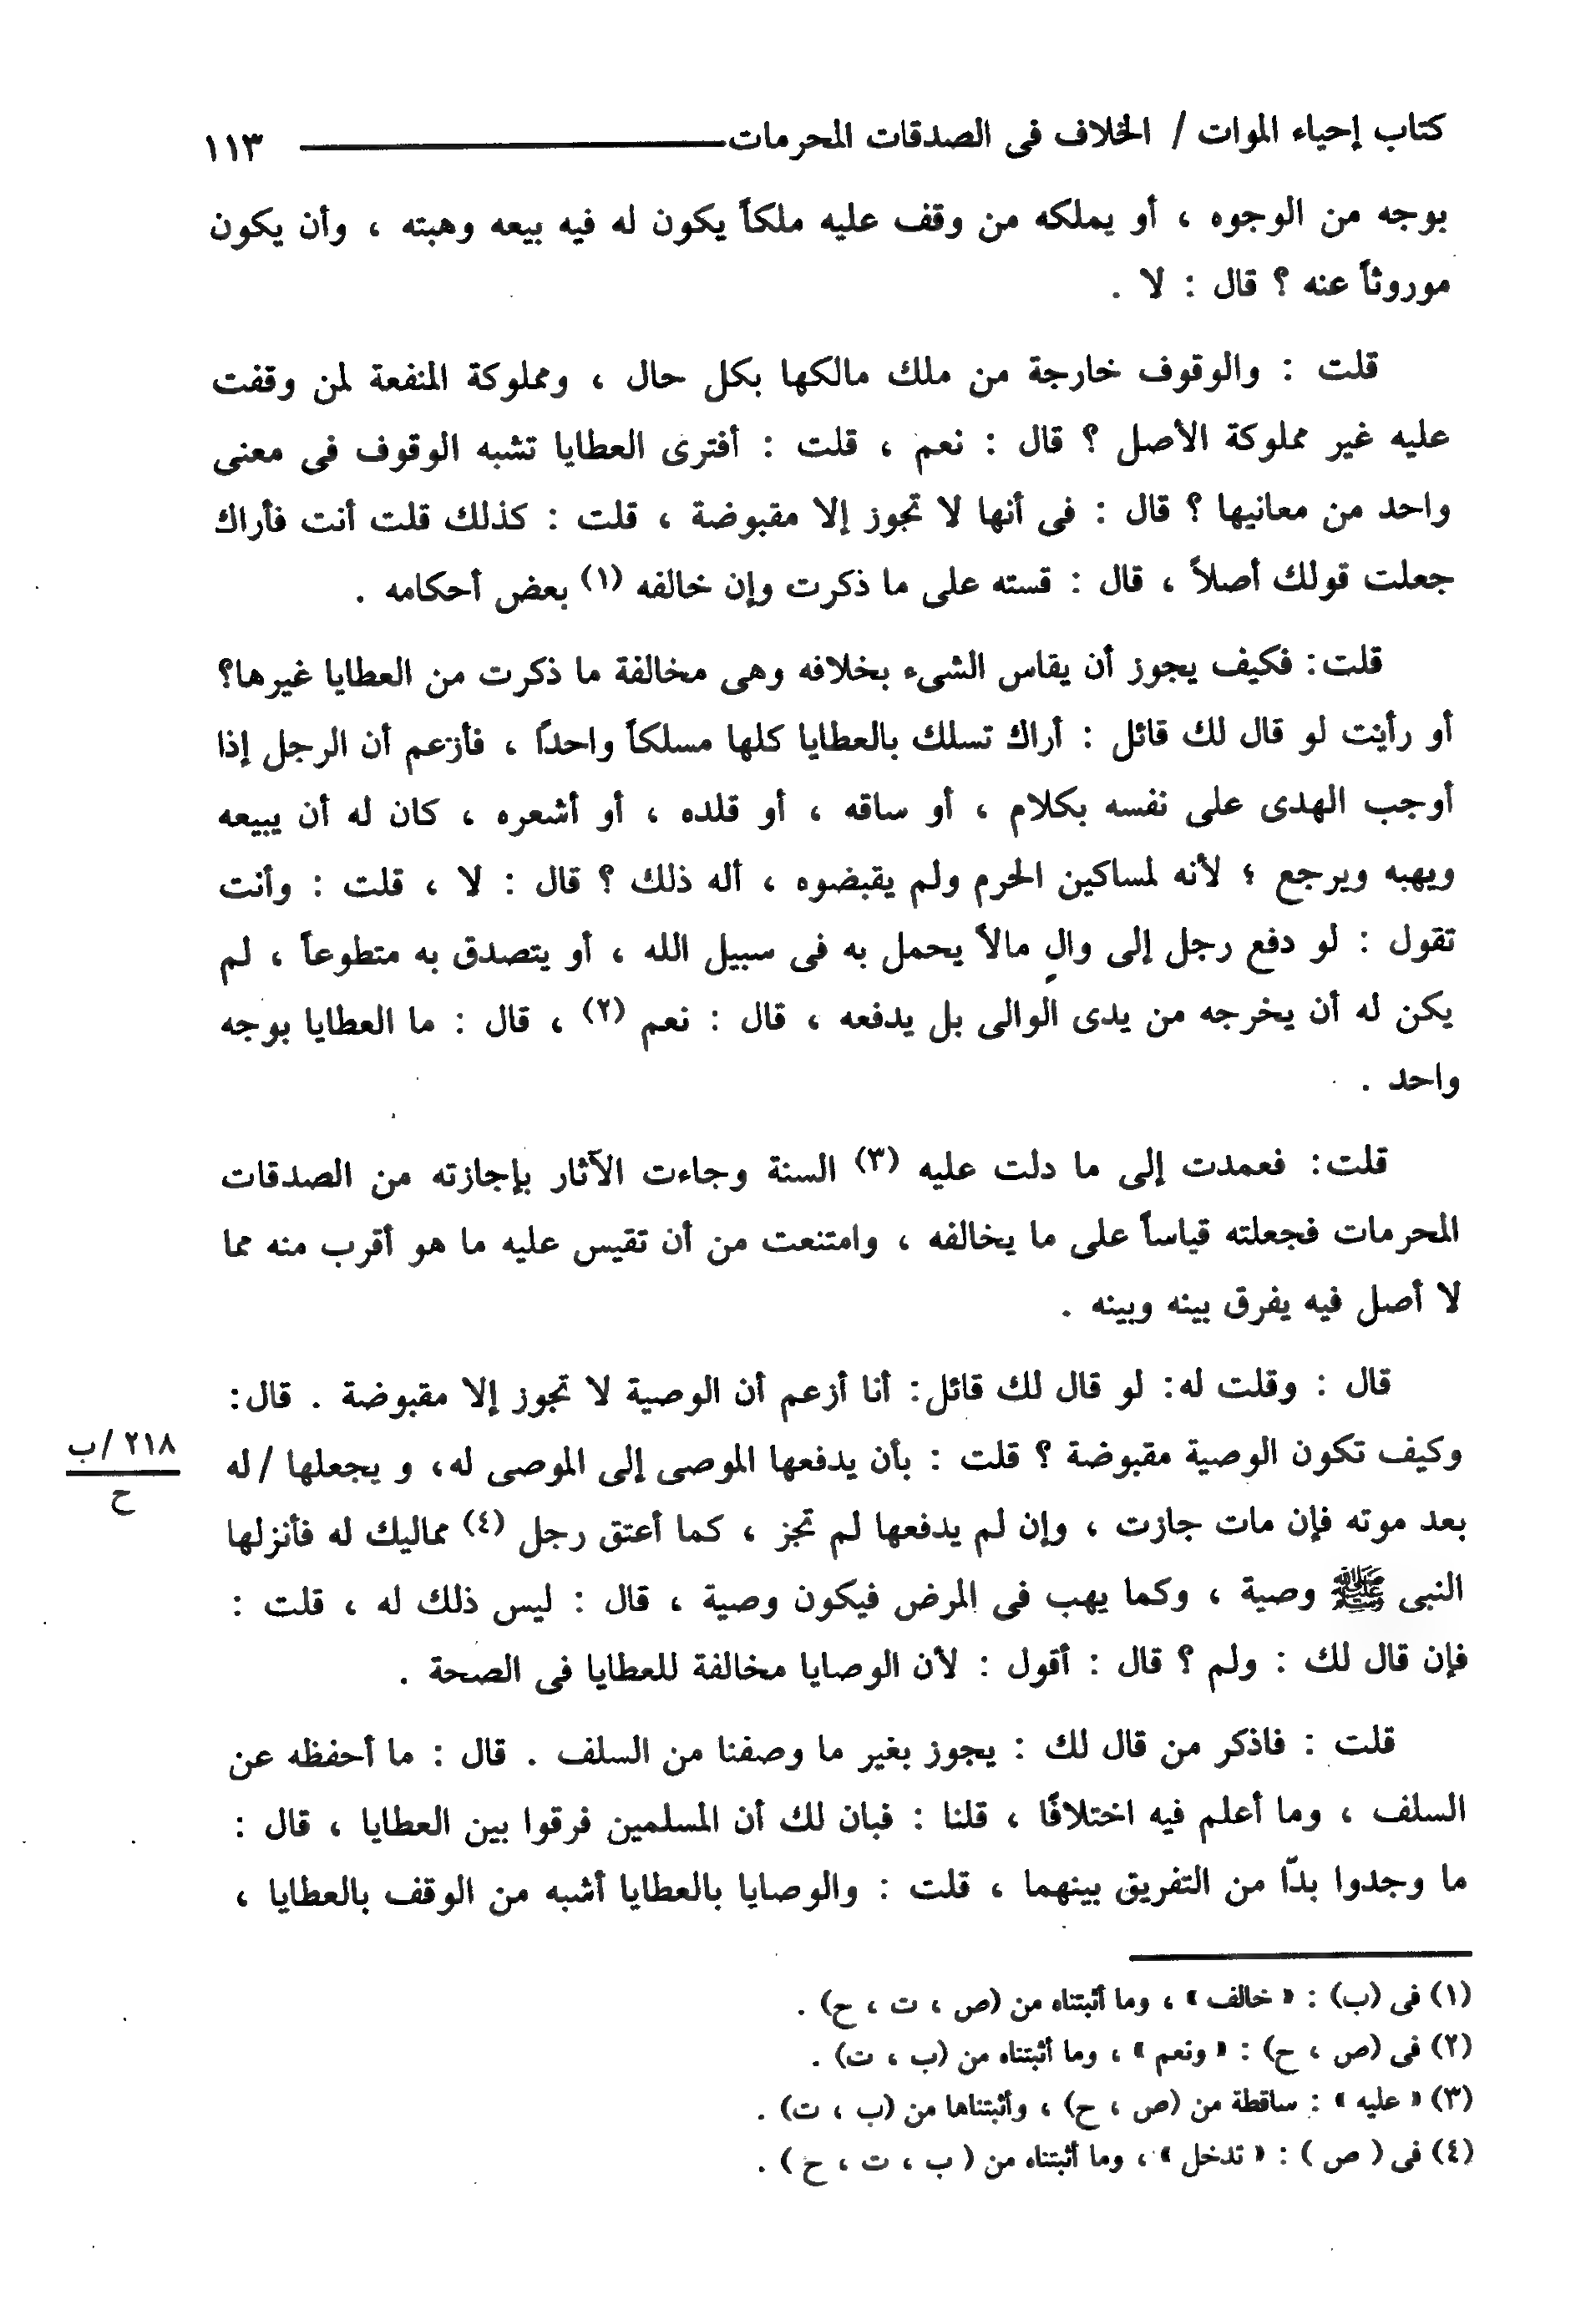 كتاب إحياء الموات / الخلاف فى الصدقات المحرمات ١١٣
بوجه من الوجوه ، أو يملكه من وقف عليه ملكاً يكون له فيه بيعه وهبته ، وأن يكون
موروثاً عنه ؟ قال : لا .
قلت : والوقوف خارجة من ملك مالكها بكل حال ، ومملوكة المنفعة لمن وقفت
عليه غير مملوكة الأصل ؟ قال : نعم ، قلت : أفترى العطايا تشبه الوقوف فى معنى
واحد من معانيها ؟ قال : فى أنها لا تجوز إلا مقبوضة ، قلت : كذلك قلت أنت فأراك
جعلت قولك أصلاً ، قال : قسته على ما ذكرت وإن خالفه (١) بعض أحكامه .
قلت: فكيف يجوز أن يقاس الشىء بخلافه وهى مخالفة ما ذكرت من العطايا غيرها؟
أو رأيت لو قال لك قائل : أراك تسلك بالعطايا كلها مسلكاً واحداً ، فأزعم أن الرجل إذا
أوجب الهدى على نفسه بكلام ، أو ساقه ، أو قلده ، أو أشعره ، كان له أن يبيعه
ويهبه ويرجع ؛ لأنه لمساكين الحرم ولم يقبضوه ، أله ذلك ؟ قال : لا ، قلت : وأنت
تقول : لو دفع رجل إلى والٍ مالاً يحمل به فى سبيل الله ، أو يتصدق به متطوعاً ، لم
يكن له أن يخرجه من يدى الوالى بل يدفعه ، قال : نعم (٢) ، قال : ما العطايا بوجه
واحد .
قلت: فعمدت إلى ما دلت عليه (٣) السنة وجاءت الآثار بإجازته من الصدقات
المحرمات فجعلته قياساً على ما يخالفه ، وامتنعت من أن تقيس عليه ما هو أقرب منه مما
لا أصل فيه يفرق بينه وبينه .
قال : وقلت له: لو قال لك قائل: أنا أزعم أن الوصية لا تجوز إلا مقبوضة . قال:
وكيف تكون الوصية مقبوضة ؟ قلت : بأن يدفعها الموصى إلى الموصى له، و يجعلها / له
٢١٨/ب
ح
بعد موته فإن مات جازت ، وإن لم يدفعها لم تجز ، كما أعتق رجل (٤) مماليك له فأنزلها
النبى ﷺ وصية ، وكما يهب فى المرض فيكون وصية ، قال : ليس ذلك له ، قلت :
فإن قال لك : ولم ؟ قال : أقول : لأن الوصايا مخالفة للعطايا فى الصحة .
قلت : فاذكر من قال لك : يجوز بغير ما وصفنا من السلف . قال : ما أحفظه عن
السلف ، وما أعلم فيه اختلافًا ، قلنا : فبان لك أن المسلمين فرقوا بين العطايا ، قال :
ما وجدوا بدّا من التفريق بينهما ، قلت : والوصايا بالعطايا أشبه من الوقف بالعطايا ،
(١) فى (ب) : « خالف » ، وما أثبتناه من (ص ، ت ، ح) .
(٢) فى (ص ، ح) : « ونعم » ، وما أثبتناه من (ب ، ت) .
(٣) « عليه » : ساقطة من (ص ، ح) ، وأثبتناها من (ب ، ت) .
(٤) فى ( ص ) : « تدخل » ، وما أثبتناه من ( ب ، ت ، ح ) .